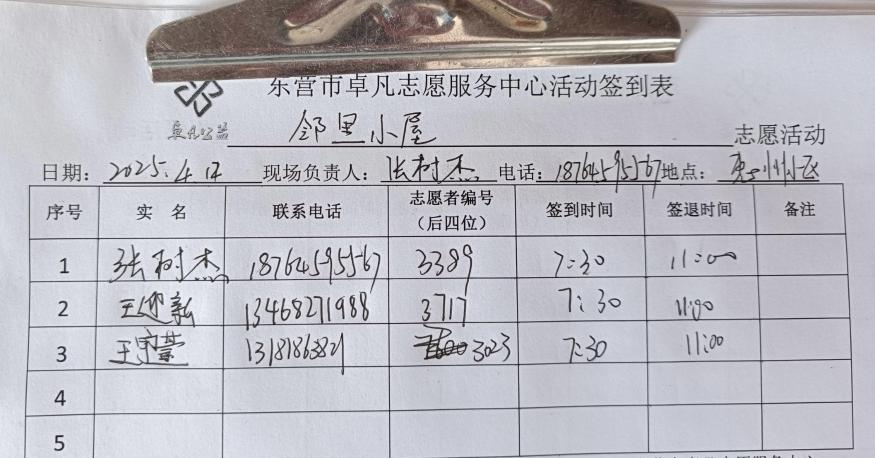 东营市卓凡志愿服务中心活动签到表
卓凡公益 邻里小屋 志愿活动
日期: 2025.4.12 现场负责人: 张树杰 电话: 18764595567 地点:
序号 实 名 联系电话 志愿者编号（后四位） 签到时间 签退时间 备注
1 张树杰 18764595567 3389 7:30 11:00
2 王迎新 13468271988 3717 7:30 11:00
3 13181863821 3023 7:30 11:00
4
5